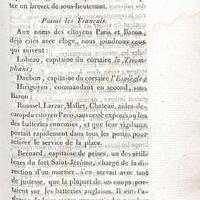 ter un brevet de sous-lieutenant.
Parmi les Français.
Aux noms des citoyens Paris et Baron,
déjà cités avec éloge, nous joindrons ceux
qui suivent :
Lobeau, capitaine du corsaire le Triom-
phant;
Dachon, capitaine du corsaire l'Espiègle;
Hirigoyen, commandant en second, sous
Baron;
Bonnet, Larraz, Mallet, Chateau, aides-de-
camp du citoyen Paris, sans cesse exposés au feu
des batteries ennemies, et que leur
portait rapidement dans tous les postes pour
activer le service de la place.
Bernard, capitaine de prises, un des
leurs du fort Saint-Jérôme, chargé de la di-
rection d'un mortier, s'en servait avec tant
de justesse, que la plupart de ses coups por-
taient sur les batteries anglaises. Il eut l'a-